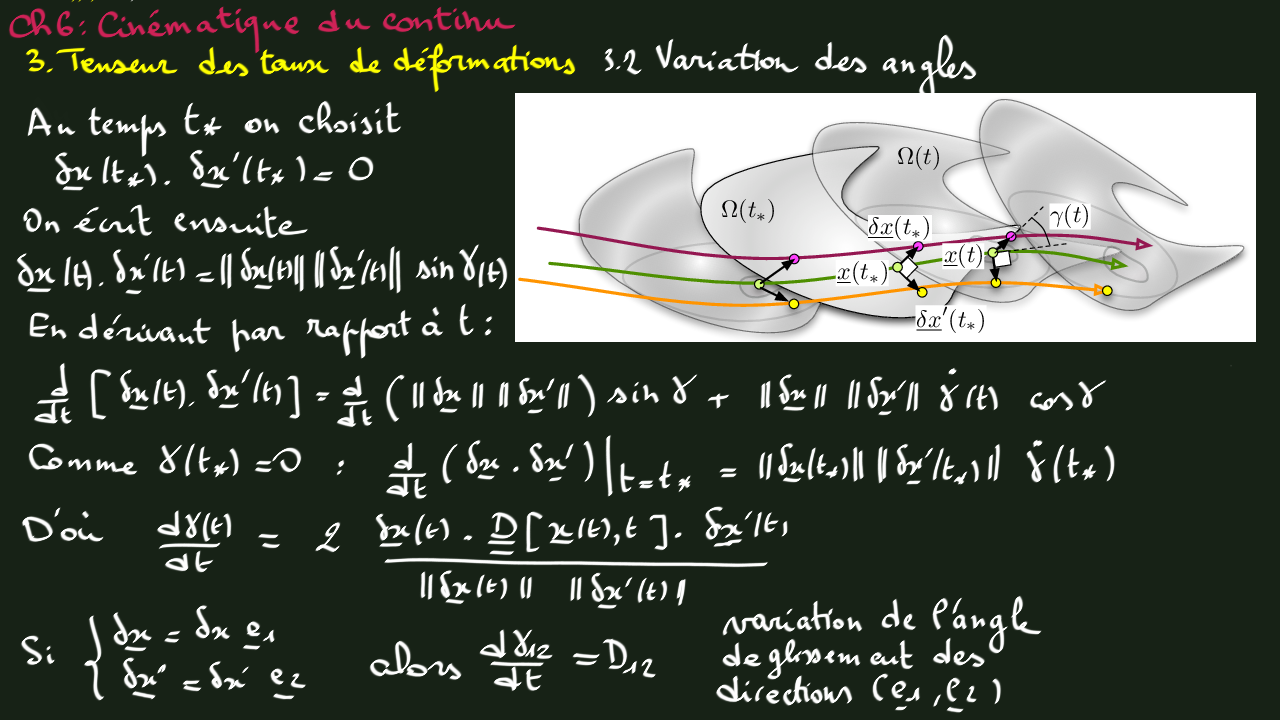 Ch6: Cinématique du continu
3. Tenseur des taux de déformations 3.2 Variation des angles
Au temps t* on choisit
δx(t*). δx'(t*) = 0
On écrit ensuite
δx(t). δx'(t) = ||δx(t)|| ||δx'(t)|| sin γ(t)
En dérivant par rapport à t :
d/dt [δx(t). δx'(t)] = d/dt (||δx|| ||δx'||) sin γ + ||δx|| ||δx'|| γ̇(t) cos γ
Comme γ(t*) = 0 : d/dt (δx . δx')|t=t* = ||δx(t*)|| ||δx'(t*)|| γ̇(t*)
D'où dγ(t)/dt = 2 δx(t) . D[x(t), t]. δx'(t) / ||δx(t)|| ||δx'(t)||
Si { δx = δx e1
δx' = δx' e2
alors dγ12/dt = D12
variation de l'angle
de glissement des
directions (e1, e2)
Ω(t)
Ω(t*)
γ(t)
δx(t*)
x(t)
x(t*)
δx'(t*)